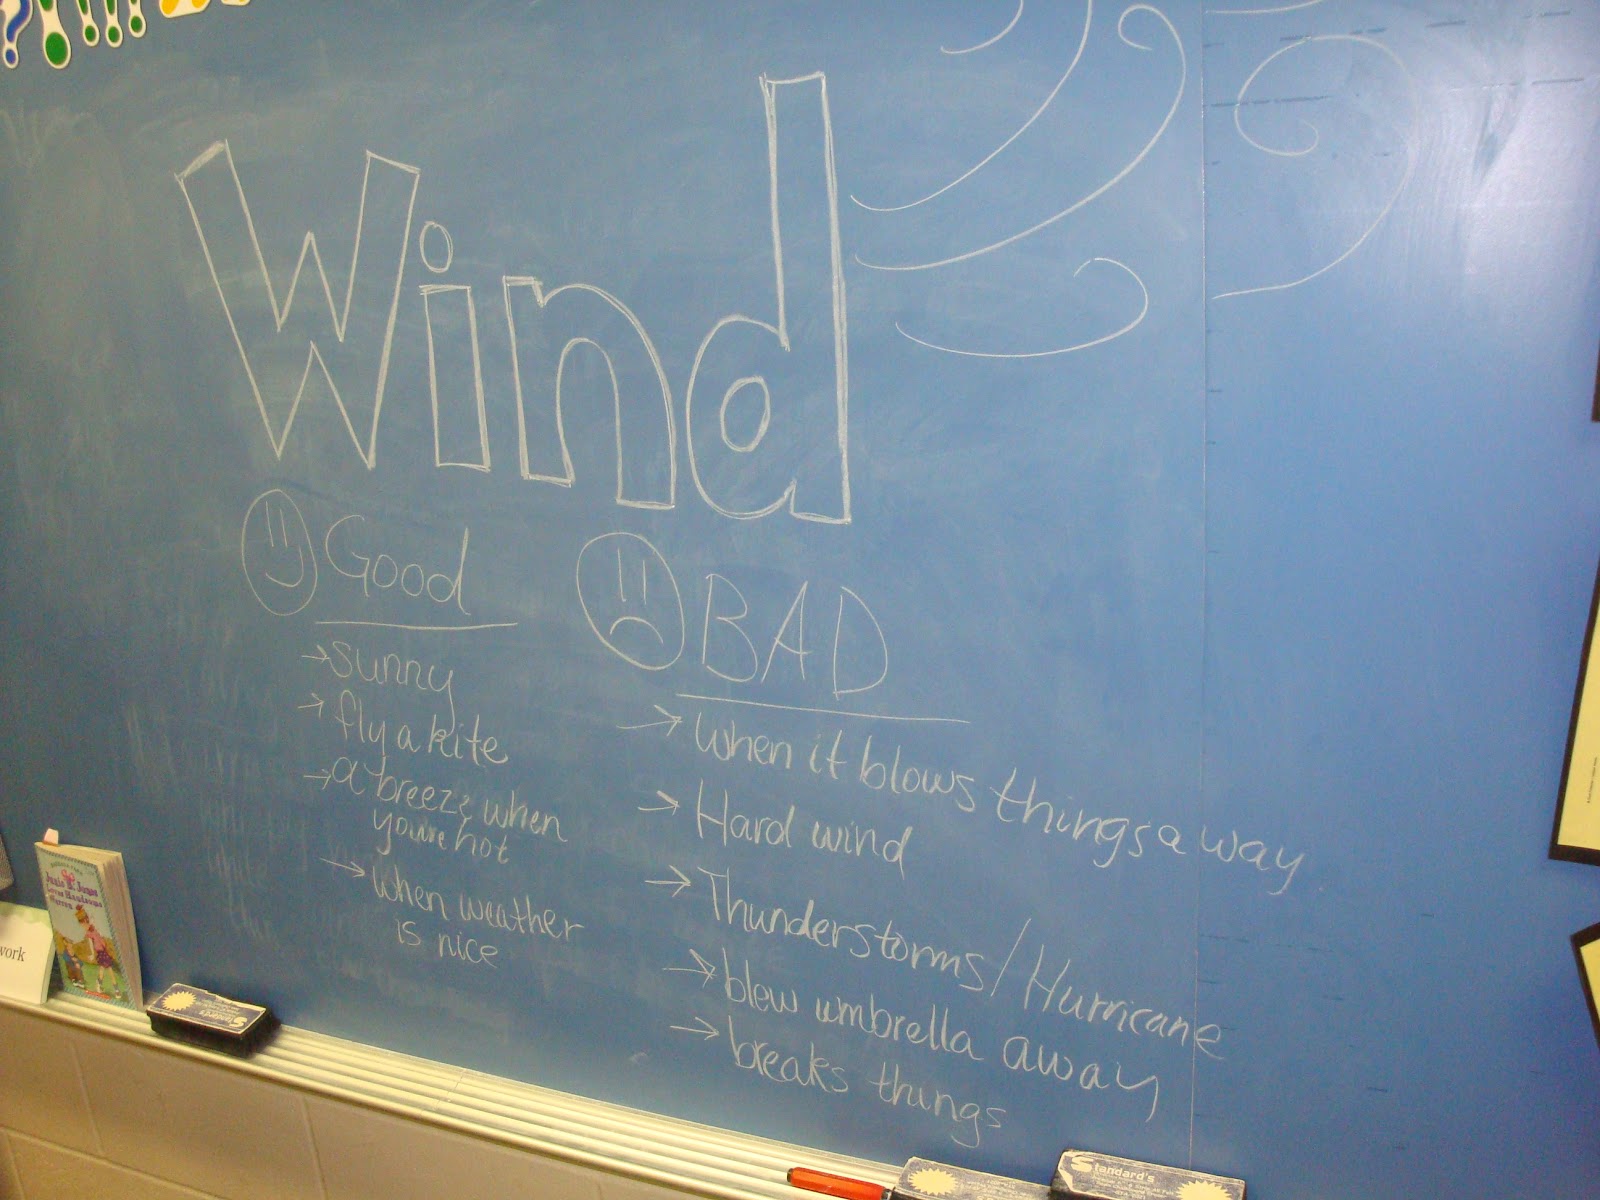 Wind
Good
→ sunny
→ fly a kite
→ a breeze when
you're hot
→ when weather
is nice
BAD
→ when it blows things away
→ Hard wind
→ Thunderstorms/Hurricane
→ blew umbrella away
→ breaks things
work
Junie B. Jones
Loves Handsome
Warren
Standard's